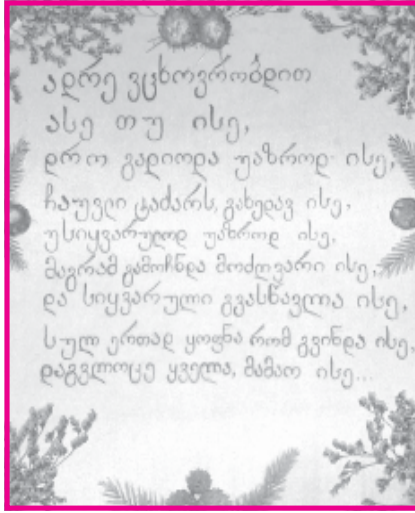 ადრე ვცხოვრობდით
ასე თუ ისე,
დრო გადიოდა უაზროდ ისე,
ჩაუვლი ტაძარს, გახედავ ისე,
უსიყვარულოდ უაზროდ ისე,
მაგრამ გამოჩნდა მოძღვარი ისე,
და სიყვარული გვასწავლა ისე,
სულ ერთად ყოფნა რომ გვინდა ისე,
დაგვლოცე ყველა, მამაო ისე...